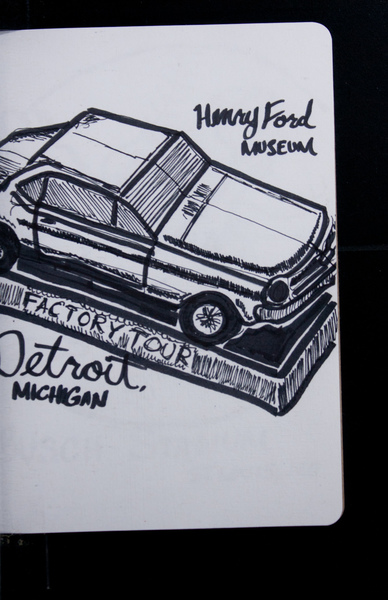 Henry Ford
MUSEUM
FACTORY TOUR
Detroit,
MICHIGAN